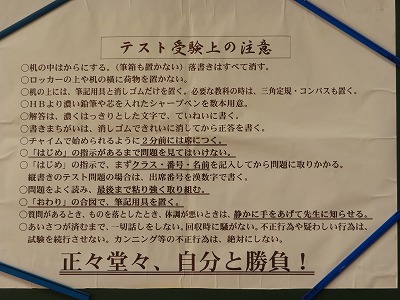 テスト受験上の注意
○机の中はからにする。(筆箱も置かない)落書きはすべて消す。
○ロッカーの上や机の横に荷物を置かない。
○机の上には、筆記用具と消しゴムだけを置く。必要な教科の時は、三角定規・コンパスも置く。
○HBより濃い鉛筆や芯を入れたシャープペンを数本用意。
○解答は、濃くはっきりとした文字で、ていねいに書く。
○書きまちがいは、消しゴムできれいに消してから正答を書く。
○チャイムで始められるように2分前には席につく。
○「はじめ」の指示があるまで問題を見てはいけない。
○「はじめ」の指示で、まずクラス・番号・名前を記入してから問題に取りかかる。
縦書きのテスト問題の場合は、出席番号を漢数字で書く。
○問題をよく読み、最後まで粘り強く取り組む。
○「おわり」の合図で、筆記用具を置く。
○質問があるとき、ものを落としたとき、体調が悪いときは、静かに手をあげて先生に知らせる。
○あいさつが済むまで、一切話しをしない。回収時に騒がない。不正行為や疑わしい行為は、
試験を続行させない。カンニング等の不正行為は、絶対にしない。
正々堂々、自分と勝負!